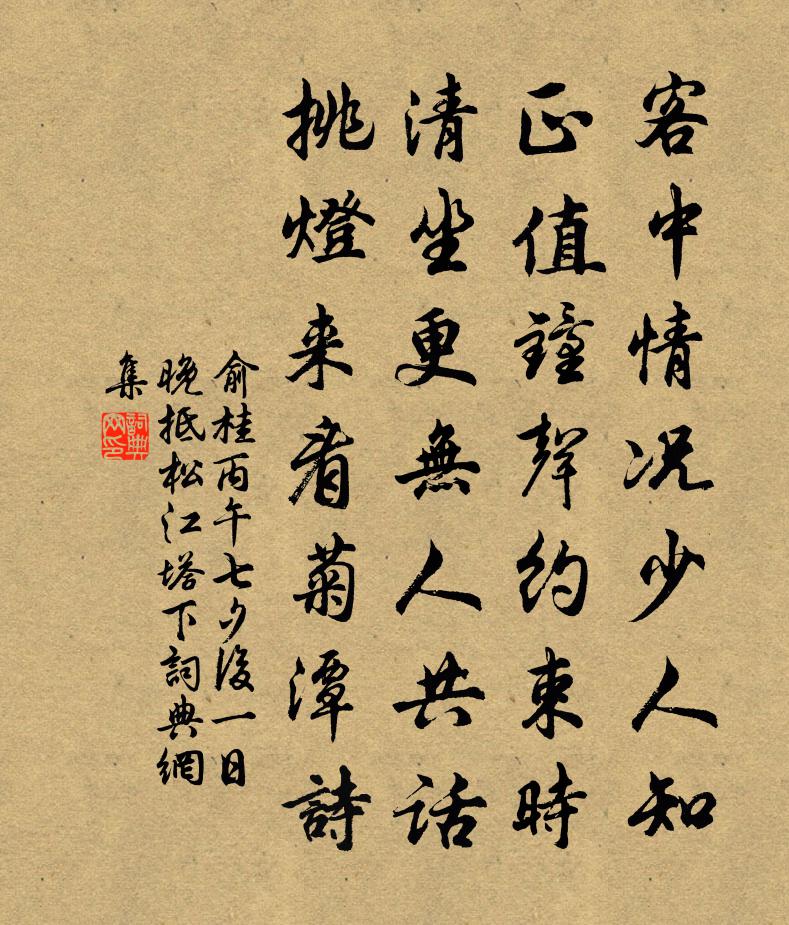 客中情况少人知
正值鐘聲約束時
清坐更無人共話
挑燈来看菊潭詩
俞桂丙午七夕後一日
晚抵松江塔下詞典網
集
詞典網印